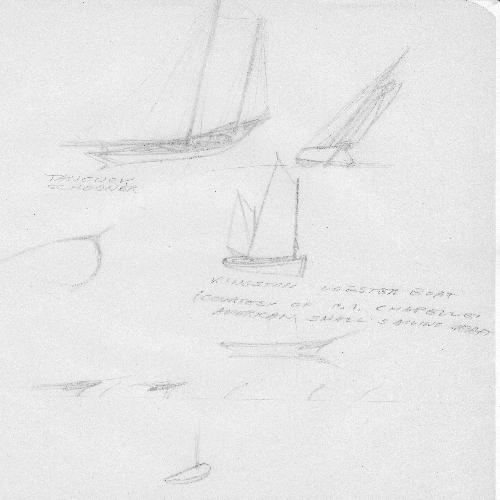 TANCOOK
SCHOONER
KINGSTON LOBSTER BOAT
(COURTESY OF H. I. CHAPELLE,
AMERICAN SMALL SAILING CRAFT